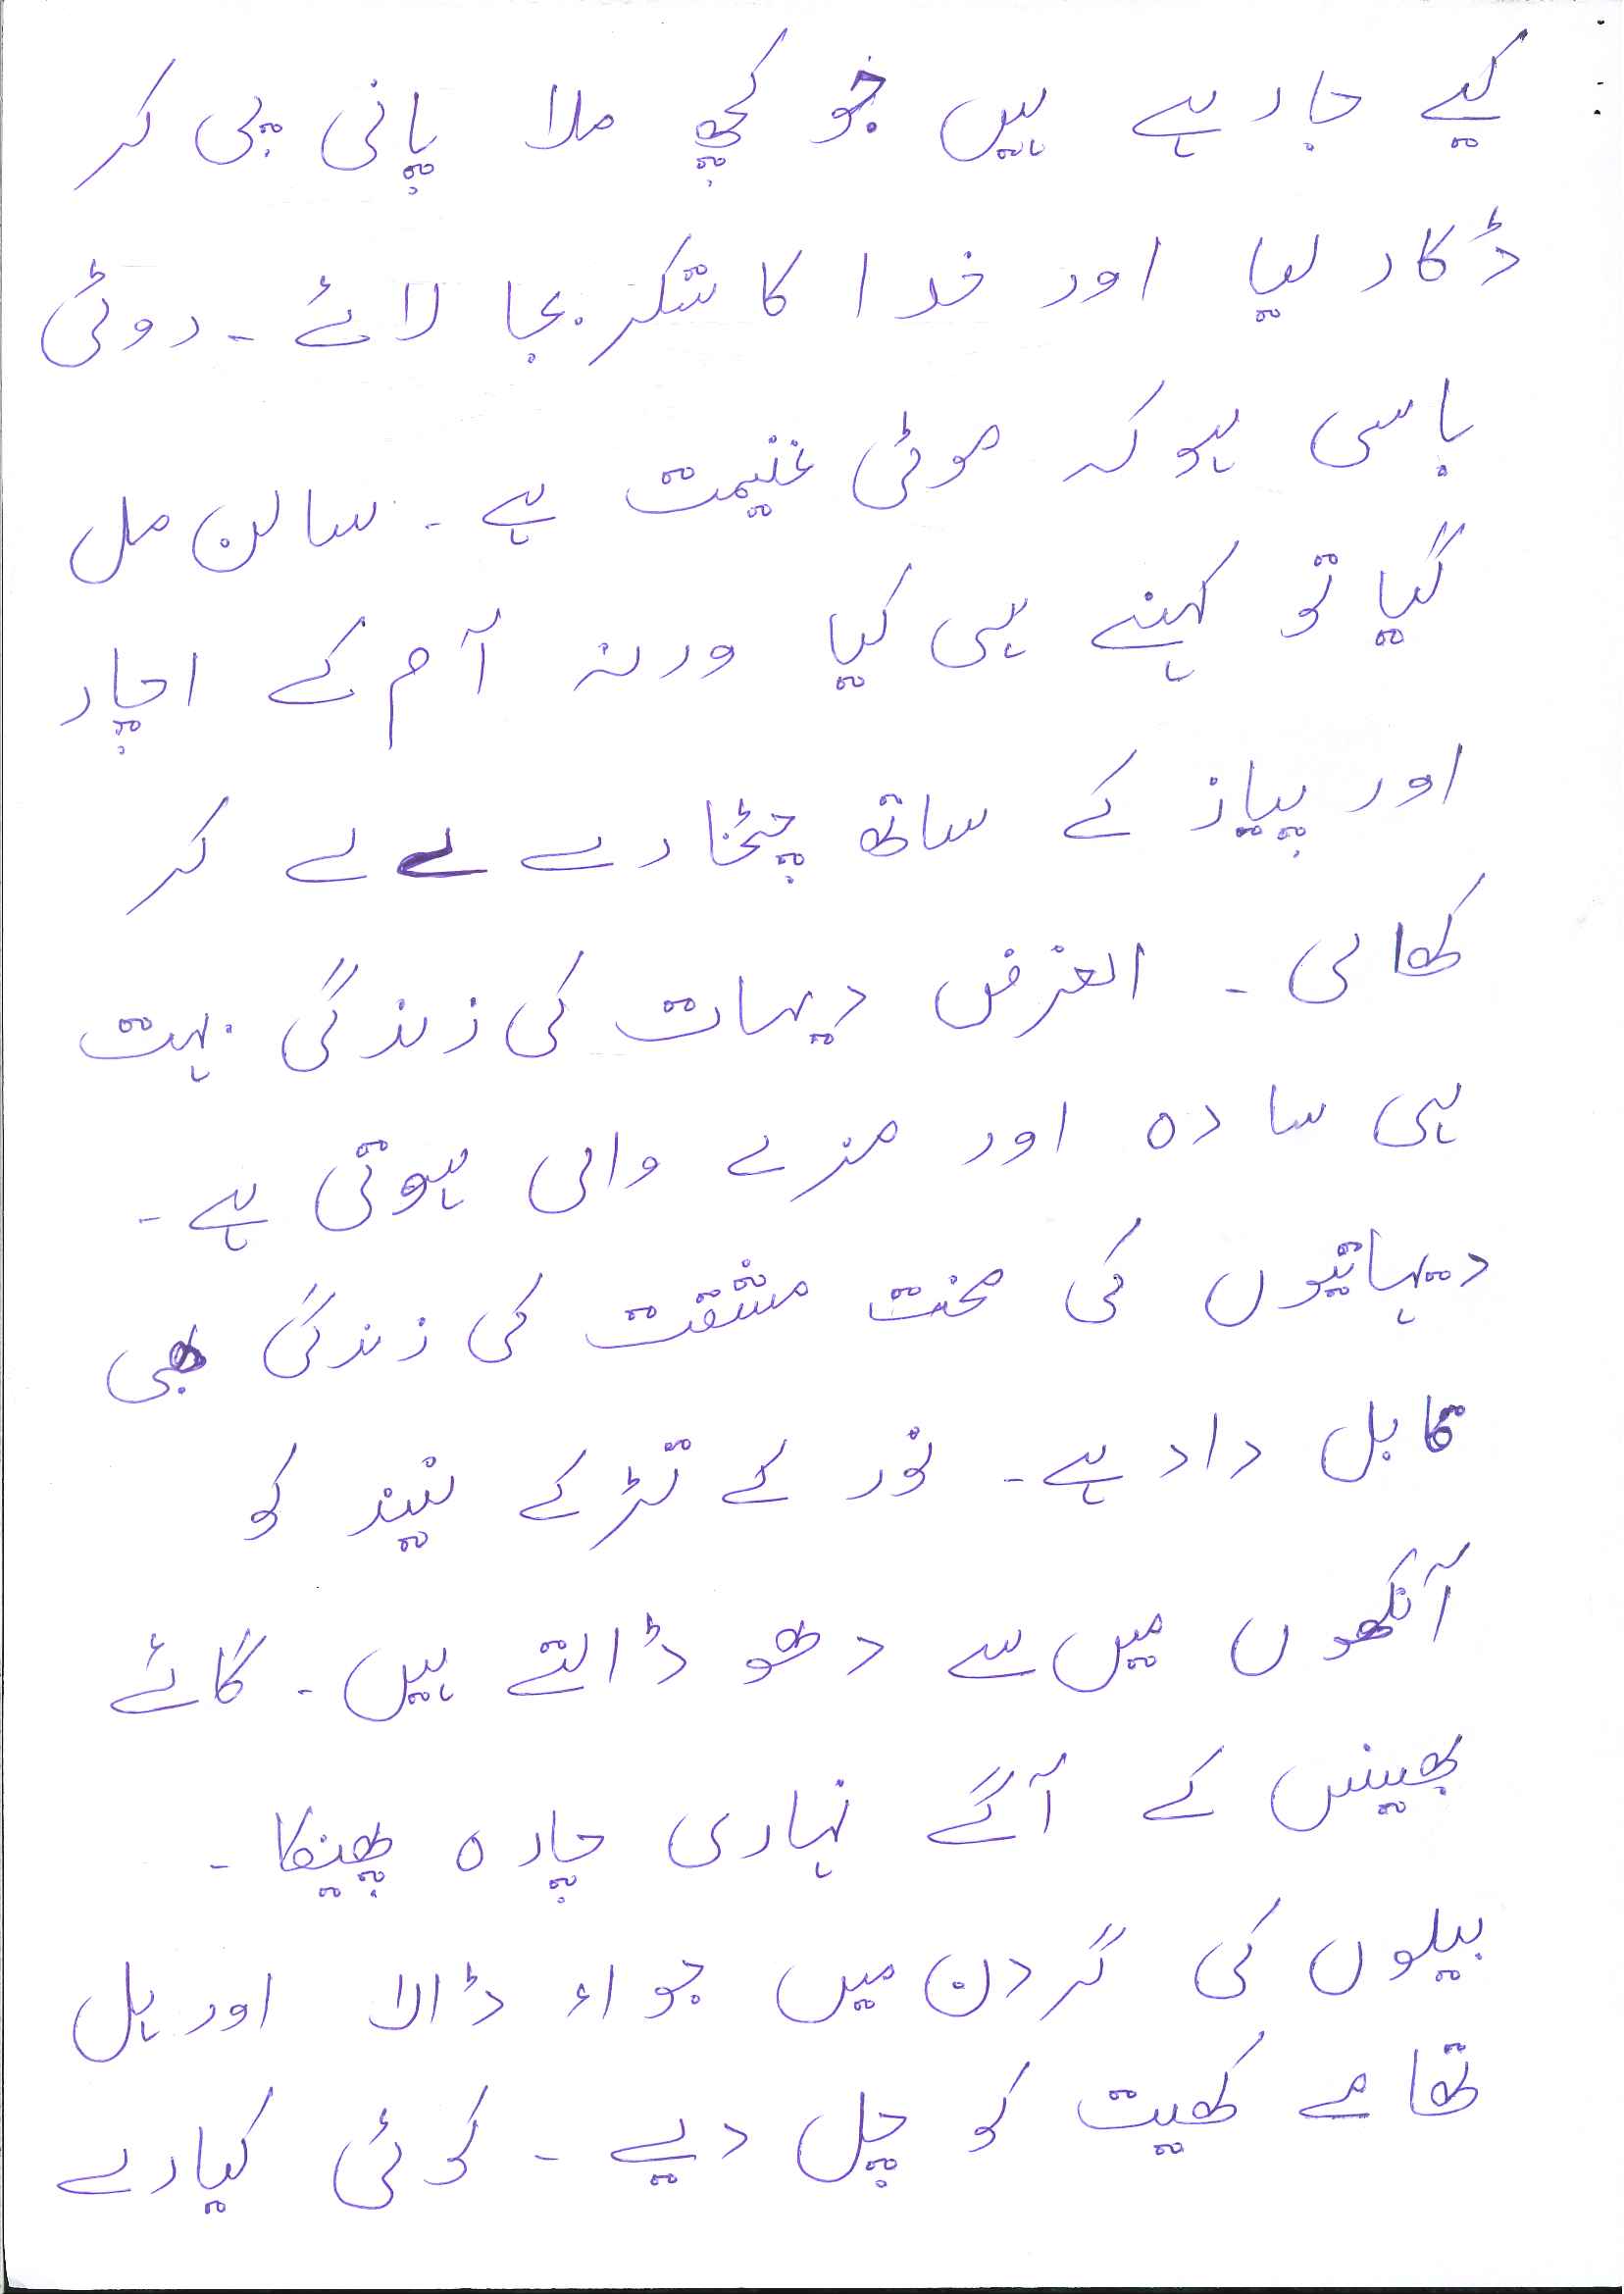 کیے جارہے ہیں جو کچھ ملا پانی پی کر
ڈکار لیا اور خدا کا شکر بجا لائے ۔ روٹی
باسی ہو کہ موٹی غنیمت ہے ۔ سالن مل
گیا تو کہنے ہی کیا ورنہ آم کے اچار
اور پیاز کے ساتھ چٹخارے لے لے کر
کھالی ۔ الغرض دیہات کی زندگی بہت
ہی سادہ اور مزے والی ہوتی ہے ۔
دیہاتیوں کی محنت مشقت کی زندگی بھی
قابل داد ہے ۔ نور کے تڑکے نیند کو
آنکھوں میں سے دھو ڈالتے ہیں ۔ گائے
بھینس کے آگے نہاری چارہ پھینکا ۔
بیلوں کی گردن میں جواء ڈالا اور ہل
تھامے کھیت کو چل دیے ۔ کوئی کیارے